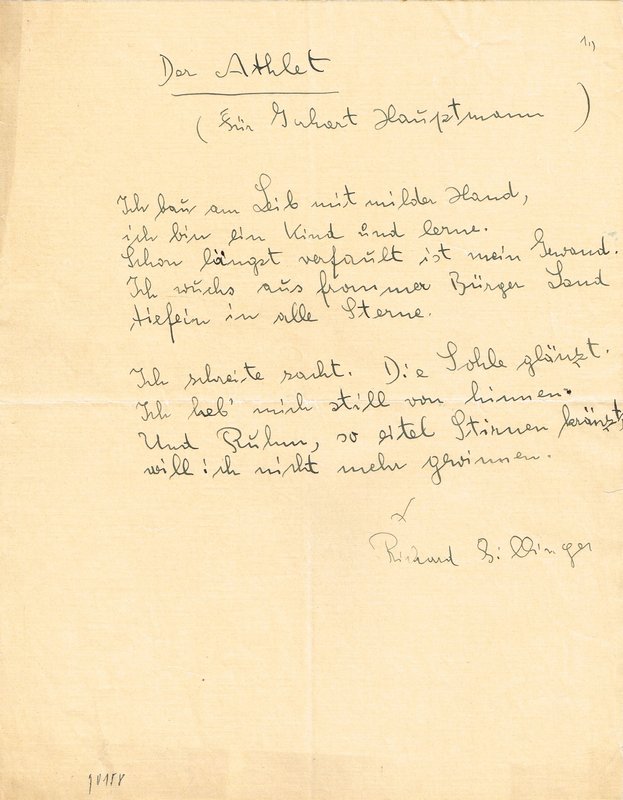 1.)
Der Athlet
(Für Gerhart Hauptmann)
Ich bau am Leib mit milder Hand,
ich bin ein Kind und lerne.
Schon längst verfault ist mein Gewand.
Ich wuchs aus frommer Bürger Land
tiefein in alle Sterne.
Ich schreite sacht. Die Sohle glänzt.
Ich heb' mich still von hinnen.
Und Ruhm, so eitel Stirnen kränzt,
will ich nicht mehr gewinnen.
Richard Billinger